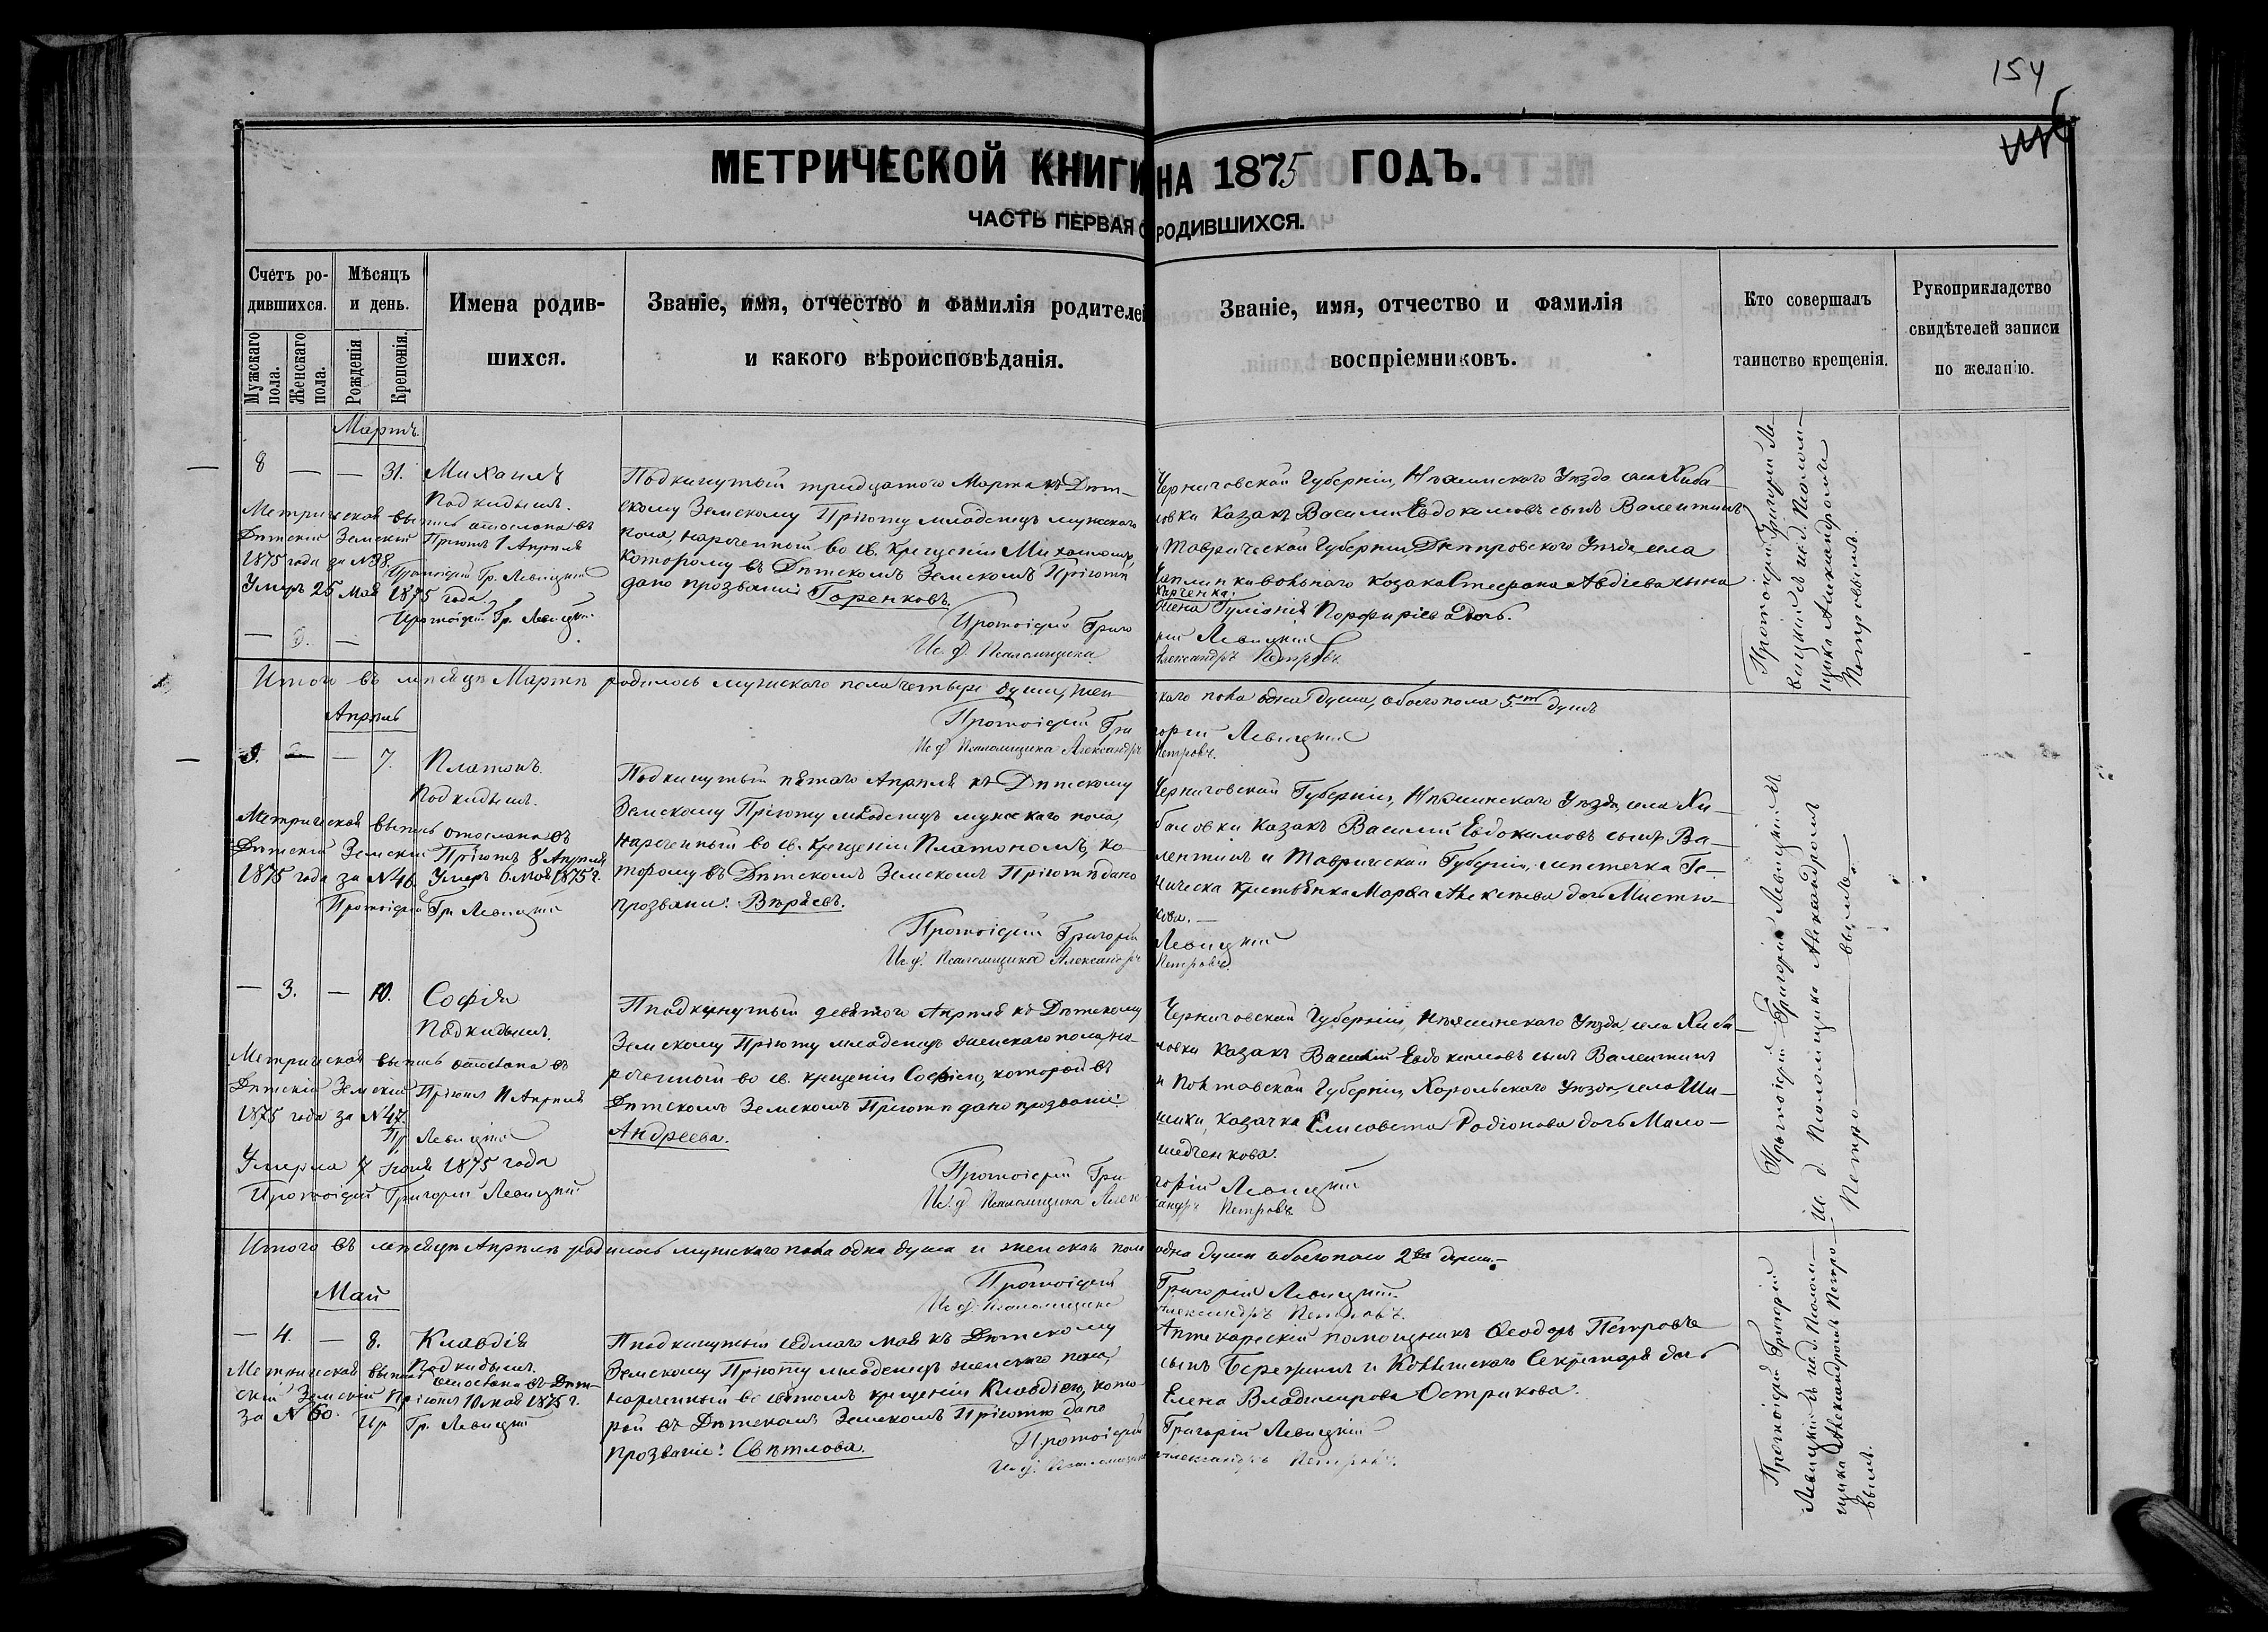 154
МЕТРИЧЕСКОЙ КНИГИ НА 1875 ГОДЪ.
ЧАСТЬ ПЕРВАЯ О РОДИВШИХСЯ.
Счетъ родившихся.
Мужскаго пола.
Женскаго пола.
Мѣсяцъ и день.
Рожденія
Крещенія.
Имена родившихся.
Званіе, имя, отчество и фамилія родителей
и какого вѣроисповѣданія.
Званіе, имя, отчество и фамилія
воспріемниковъ.
Кто совершалъ
таинство крещенія.
Рукоприкладство
свидѣтелей записи
по желанію.
Мартъ.
8 — — 31. Михаилъ
Подкидышъ.
Метрическая выпись отослана въ
Дѣтскій Земскій Пріютъ 1 Апрѣля
1875 года за №38.
Протоіерей Гр. Левицкій
Умеръ 25 Мая 1875 года.
Протоіерей Гр. Левицкій
Подкинутый тридцатого Марта къ Дѣт-
скому Земскому Пріюту младенецъ мужскаго
пола, нареченный во св. крещеніи Михаиломъ,
которому въ Дѣтскомъ Земскомъ Пріютѣ
дано прозваніе Горенковъ.
Черниговской Губерніи, Нѣжинского Уѣзда села Хиба-
ловки Казакъ Василій Евдокимовъ сынъ Валентинъ
и Таврической Губерніи Днѣпровского Уѣзда села
Чаплинки вольнаго козака Стефана Авдіева сына
Харченка:
жена Гуліанія Порфиріева Дочь.
Протоіерей Григорій Левицкій
Ис. д. Псаломщика Александръ Петровъ.
Протоіерей Григорій Ле-
вицкій съ и. д. Псалом-
щика Александромъ
Петровымъ.
Итого въ мѣсяцѣ Мартѣ родилось мужскаго пола четыре души, женскаго пола одна душа, обоего пола 5ть душъ
Протоіерей Григорій Левицкій
Ис. д. Псаломщика Александръ Петровъ.
Апрѣль
9. — — 7. Платонъ.
Подкидышъ.
Метрическая выпись отослана въ
Дѣтскій Земскій Пріютъ 8 Апрѣля
1875 года за №46. Умеръ 6 мая 1875 г.
Протоіерей Гр. Левицкій
Подкинутый пятаго Апрѣля къ Дѣтскому
Земскому Пріюту младенецъ мужскаго пола,
нареченный во св. крещеніи Платономъ, ко-
торому въ Дѣтскомъ Земскомъ Пріютѣ дано
прозваніе: Вѣряевъ.
Черниговской Губерніи, Нѣжинского Уѣзда, села Хи-
баловки Казакъ Василій Евдокимовъ сынъ Ва-
лентинъ и Таврической Губерніи, мѣстечка Ге-
ническа крестьянка Марѳа Алексѣева дочь Мистю-
кова. —
Протоіерей Григорій Левицкій
Ис. д. Псаломщика Александръ Петровъ.
— 3. — 10. Софія
Подкидышъ.
Метрическая выпись отослана въ
Дѣтскій Земскій Пріютъ 11 Апрѣля
1875 года за №47.
Пр. Левицкій
Умерла 7 1875 года
Протоіерей Григорій Левицкій
Подкинутый девятого Апрѣля къ Дѣтскому
Земскому Пріюту младенецъ женскаго пола, на-
реченный во св. крещеніи Софіею, которой въ
Дѣтскомъ Земскомъ Пріютѣ дано прозваніе:
Андреева.
Черниговской Губерніи, Нѣжинского Уѣзда, села Хиба-
ловки Казакъ Василій Евдокимовъ сынъ Валентинъ
и Полтавской Губерніи, Хорольского Уѣзда, села Ши-
шики, казачка Елисавета Родіонова дочь Мало-
шедченкова.
Протоіерей Григорій Левицкій
Ис. д. Псаломщика Александръ Петровъ
Протоіерей Григорій Левицкій съ
Ис. д. Псаломщика Александромъ
Петровымъ.
Итого въ мѣсяцѣ Апрѣлѣ родилось мужскаго пола одна душа и женскаго пола одна душа обоего пола 2ве души. —
Протоіерей Григорій Левицкій.
Ис. д. Псаломщика Александръ Петровъ.
Май
— 4. — 8. Клавдія
Подкидышъ.
Метрическая выпись отослана въ Дѣт-
скій Земскій Пріютъ 10 мая 1875 г.
за №60. Пр. Гр. Левицкій
Подкинутый седмаго мая къ Дѣтскому
Земскому Пріюту младенецъ женскаго пола,
нареченный во святомъ крещеніи Клавдіею, кото-
рой въ Дѣтскомъ Земскомъ Пріютѣ дано
прозваніе: Свѣтлова.
Аптекарскій помощникъ Ѳеодоръ Петровъ
сынъ Бережинъ и Колежского Секретаря дочь
Елена Владимірова Острикова.
Протоіерей Григорій Левицкій
Ис. д. Псаломщика Александръ Петровъ.
Протоіерей Григорій
Левицкій съ и. д. Псалом-
щика Александромъ Петро-
вымъ.